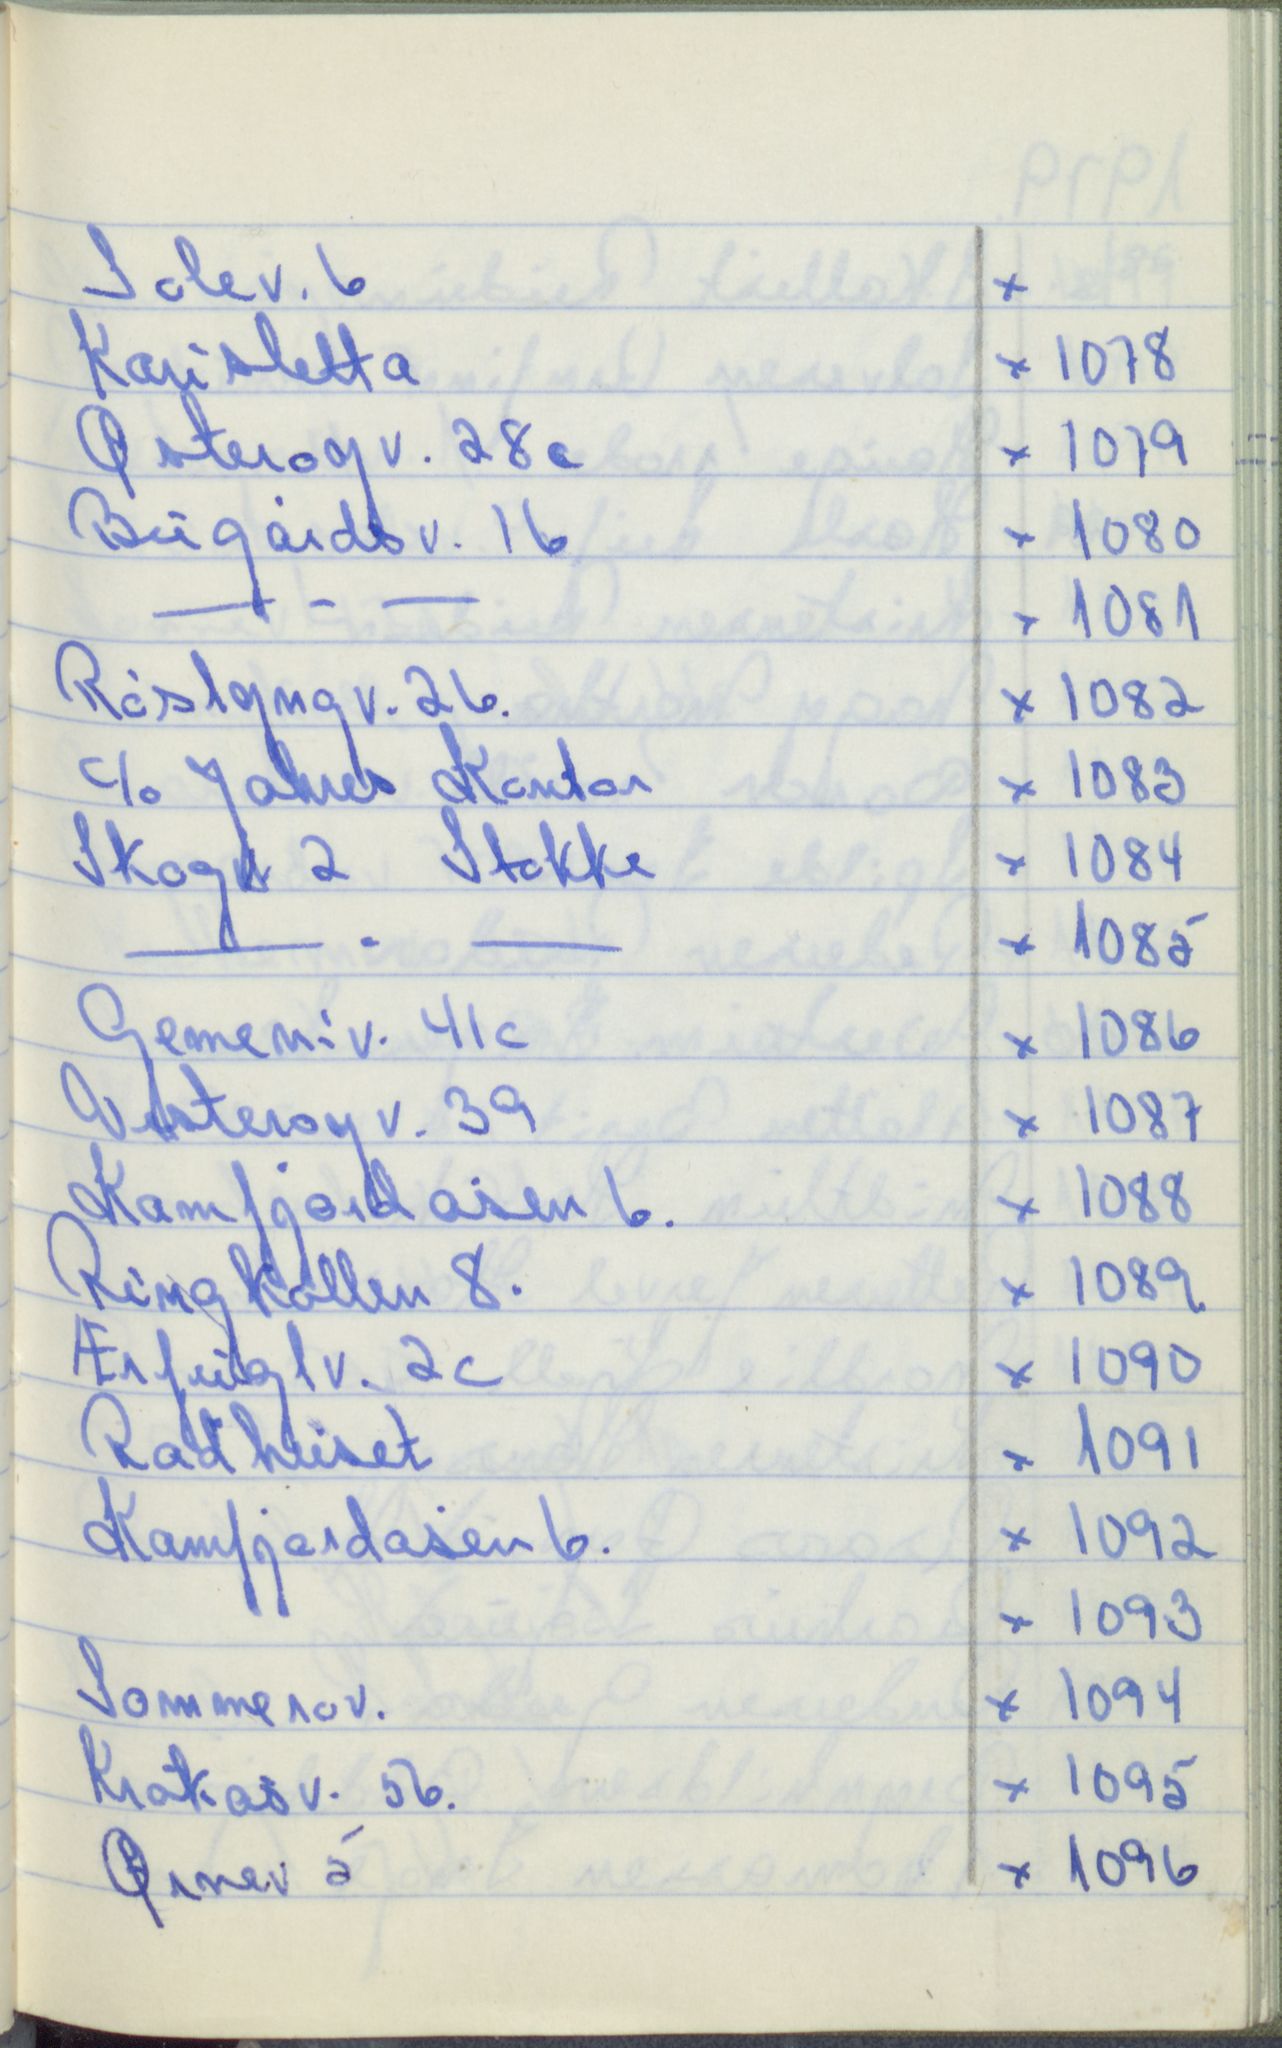 Solev. 6 x
Karisletta x 1078
Østerøyv. 28c x 1079
Bugårdsv. 16 x 1080
— - — x 1081
Røslyngv. 26. x 1082
c/o Jahres Kontor x 1083
Skogv 2 Stokke x 1084
— - — x 1085
Gemeniv. 41c x 1086
Vesterøyv. 39 x 1087
Kamfjordåsen 6. x 1088
Ringkollen 8. x 1089
Ærfuglv. 2c x 1090
Rådhuset x 1091
Kamfjordåsen 6. x 1092
x 1093
Sommerov. x 1094
Kråkåsv. 56. x 1095
Ørnev 5 x 1096